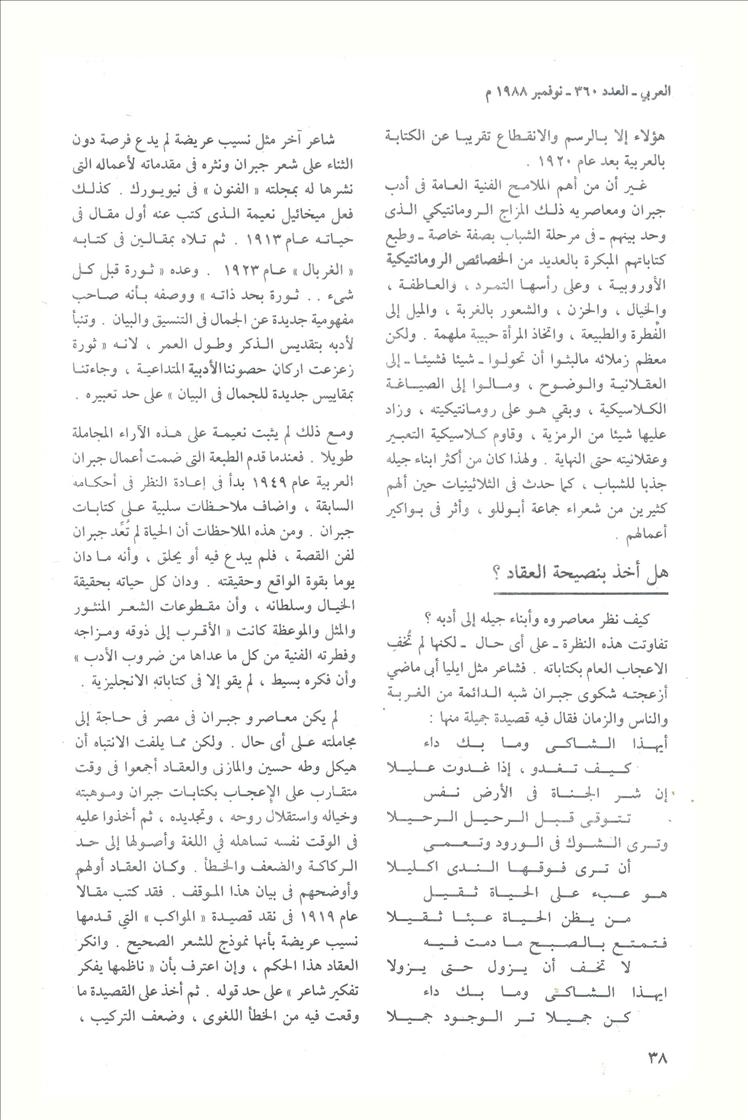 العربي ـ العدد ٣٦٠ ـ نوفمبر ١٩٨٨ م
هؤلاء إلا بالرسم والانقطاع تقريبا عن الكتابة
بالعربية بعد عام ١٩٢٠ .
غير أن من أهم الملامح الفنية العامة فى أدب
جبران ومعاصريه ذلك المزاج الرومانتيكي الذى
وحد بينهم ـ فى مرحلة الشباب بصفة خاصة ـ وطبع
كتاباتهم المبكرة بالعديد من الخصائص الرومانتيكية
الأوروبية ، وعلى رأسها التمرد ، والعاطفة ،
والخيال ، والحزن ، والشعور بالغربة ، والميل إلى
الفْطرة والطبيعة ، واتخاذ المرأة حبيبة ملهمة . ولكن
معظم زملائه مالبثوا أن تحولوا ـ شيئا فشيئا ـ إلى
العقلانية والوضوح ، ومالوا إلى الصياغة
الكلاسيكية ، وبقي هو على رومانتيكيته ، وزاد
عليها شيئا من الرمزية ، وقاوم كلاسيكية التعبير
وعقلانيته حتى النهاية . ولهذا كان من أكثر ابناء جيله
جذبا للشباب ، كما حدث فى الثلاثينيات حين ألهم
كثيرين من شعراء جماعة أبوللو ، وأثر فى بواكير
أعمالهم .
هل أخذ بنصيحة العقاد ؟
كيف نظر معاصروه وأبناء جيله إلى أدبه ؟
تفاوتت هذه النظرة ـ على أى حال ـ لكنها لم تُخفِ
الاعجاب العام بكتاباته . فشاعر مثل ايليا أبى ماضي
أزعجته شكوى جبران شبه الدائمة من الغربة
والناس والزمان فقال فيه قصيدة جميلة منها :
أيهذا الشاكى وما بك داء
كيف تغدو ، إذا غدوت عليلا
إن شر الجناة فى الأرض نفس
تتوقى قبل الرحيل الرحيلا
وترى الشوك فى الورود وتعمى
أن ترى فوقها الندى اكليلا
هو عبء على الحياة ثقيل
من يظن الحياة عبئا ثقيلا
فتمتع بالصبح ما دمت فيه
لا تخف أن يزول حتى يزولا
ايهذا الشاكى وما بك داء
كن جميلا تر الوجود جميلا
شاعر آخر مثل نسيب عريضة لم يدع فرصة دون
الثناء على شعر جبران ونثره فى مقدماته لأعماله التى
نشرها له بمجلته « الفنون » فى نيويورك . كذلك
فعل ميخائيل نعيمة الذى كتب عنه أول مقال فى
حياته عام ١٩١٣ . ثم تلاه بمقالين فى كتابه
« الغربال » عام ١٩٢٣ . وعده « ثورة قبل كل
شىء . . ثورة بحد ذاته » ووصفه بأنه صاحب
مفهومية جديدة عن الجمال فى التنسيق والبيان . وتنبأ
لأدبه بتقديس الذكر وطول العمر ، لانه « ثورة
زعزعت اركان حصوننا الأدبية المتداعية ، وجاءتنا
بمقاييس جديدة للجمال فى البيان » على حد تعبيره .
ومع ذلك لم يثبت نعيمة على هذه الآراء المجاملة
طويلا . فعندما قدم الطبعة التى ضمت أعمال جبران
العربية عام ١٩٤٩ بدأ فى إعادة النظر فى أحكامه
السابقة ، واضاف ملاحظات سلبية على كتابات
جبران . ومن هذه الملاحظات أن الحياة لم تُعِّد جبران
لفن القصة ، فلم يبدع فيه أو يحلق ، وأنه ما دان
يوما بقوة الواقع وحقيقته . ودان كل حياته بحقيقة
الخيال وسلطانه ، وأن مقطوعات الشعر المنثور
والمثل والموعظة كانت « الأقرب إلى ذوقه ومزاجه
وفطرته الفنية من كل ما عداها من ضروب الأدب »
وأن فكره بسيط ، لم يقو إلا فى كتاباته الانجليزية .
لم يكن معاصرو جبران فى مصر فى حاجة إلى
مجاملته على أى حال . ولكن مما يلفت الانتباه أن
هيكل وطه حسين والمازنى والعقاد أجمعوا فى وقت
متقارب على الإعجاب بكتابات جبران وموهبته
وخياله واستقلال روحه ، وتجديده ، ثم أخذوا عليه
فى الوقت نفسه تساهله فى اللغة وأصولها إلى حد
الركاكة والضعف والخطأ . وكان العقاد أولهم
وأوضحهم فى بيان هذا الموقف . فقد كتب مقالا
عام ١٩١٩ فى نقد قصيدة « المواكب » التي قدمها
نسيب عريضة بأنها نموذج للشعر الصحيح . وانكر
العقاد هذا الحكم ، وإن اعترف بأن « ناظمها يفكر
تفكير شاعر » على حد قوله . ثم أخذ على القصيدة ما
وقعت فيه من الخطأ اللغوى ، وضعف التركيب ،
٣٨